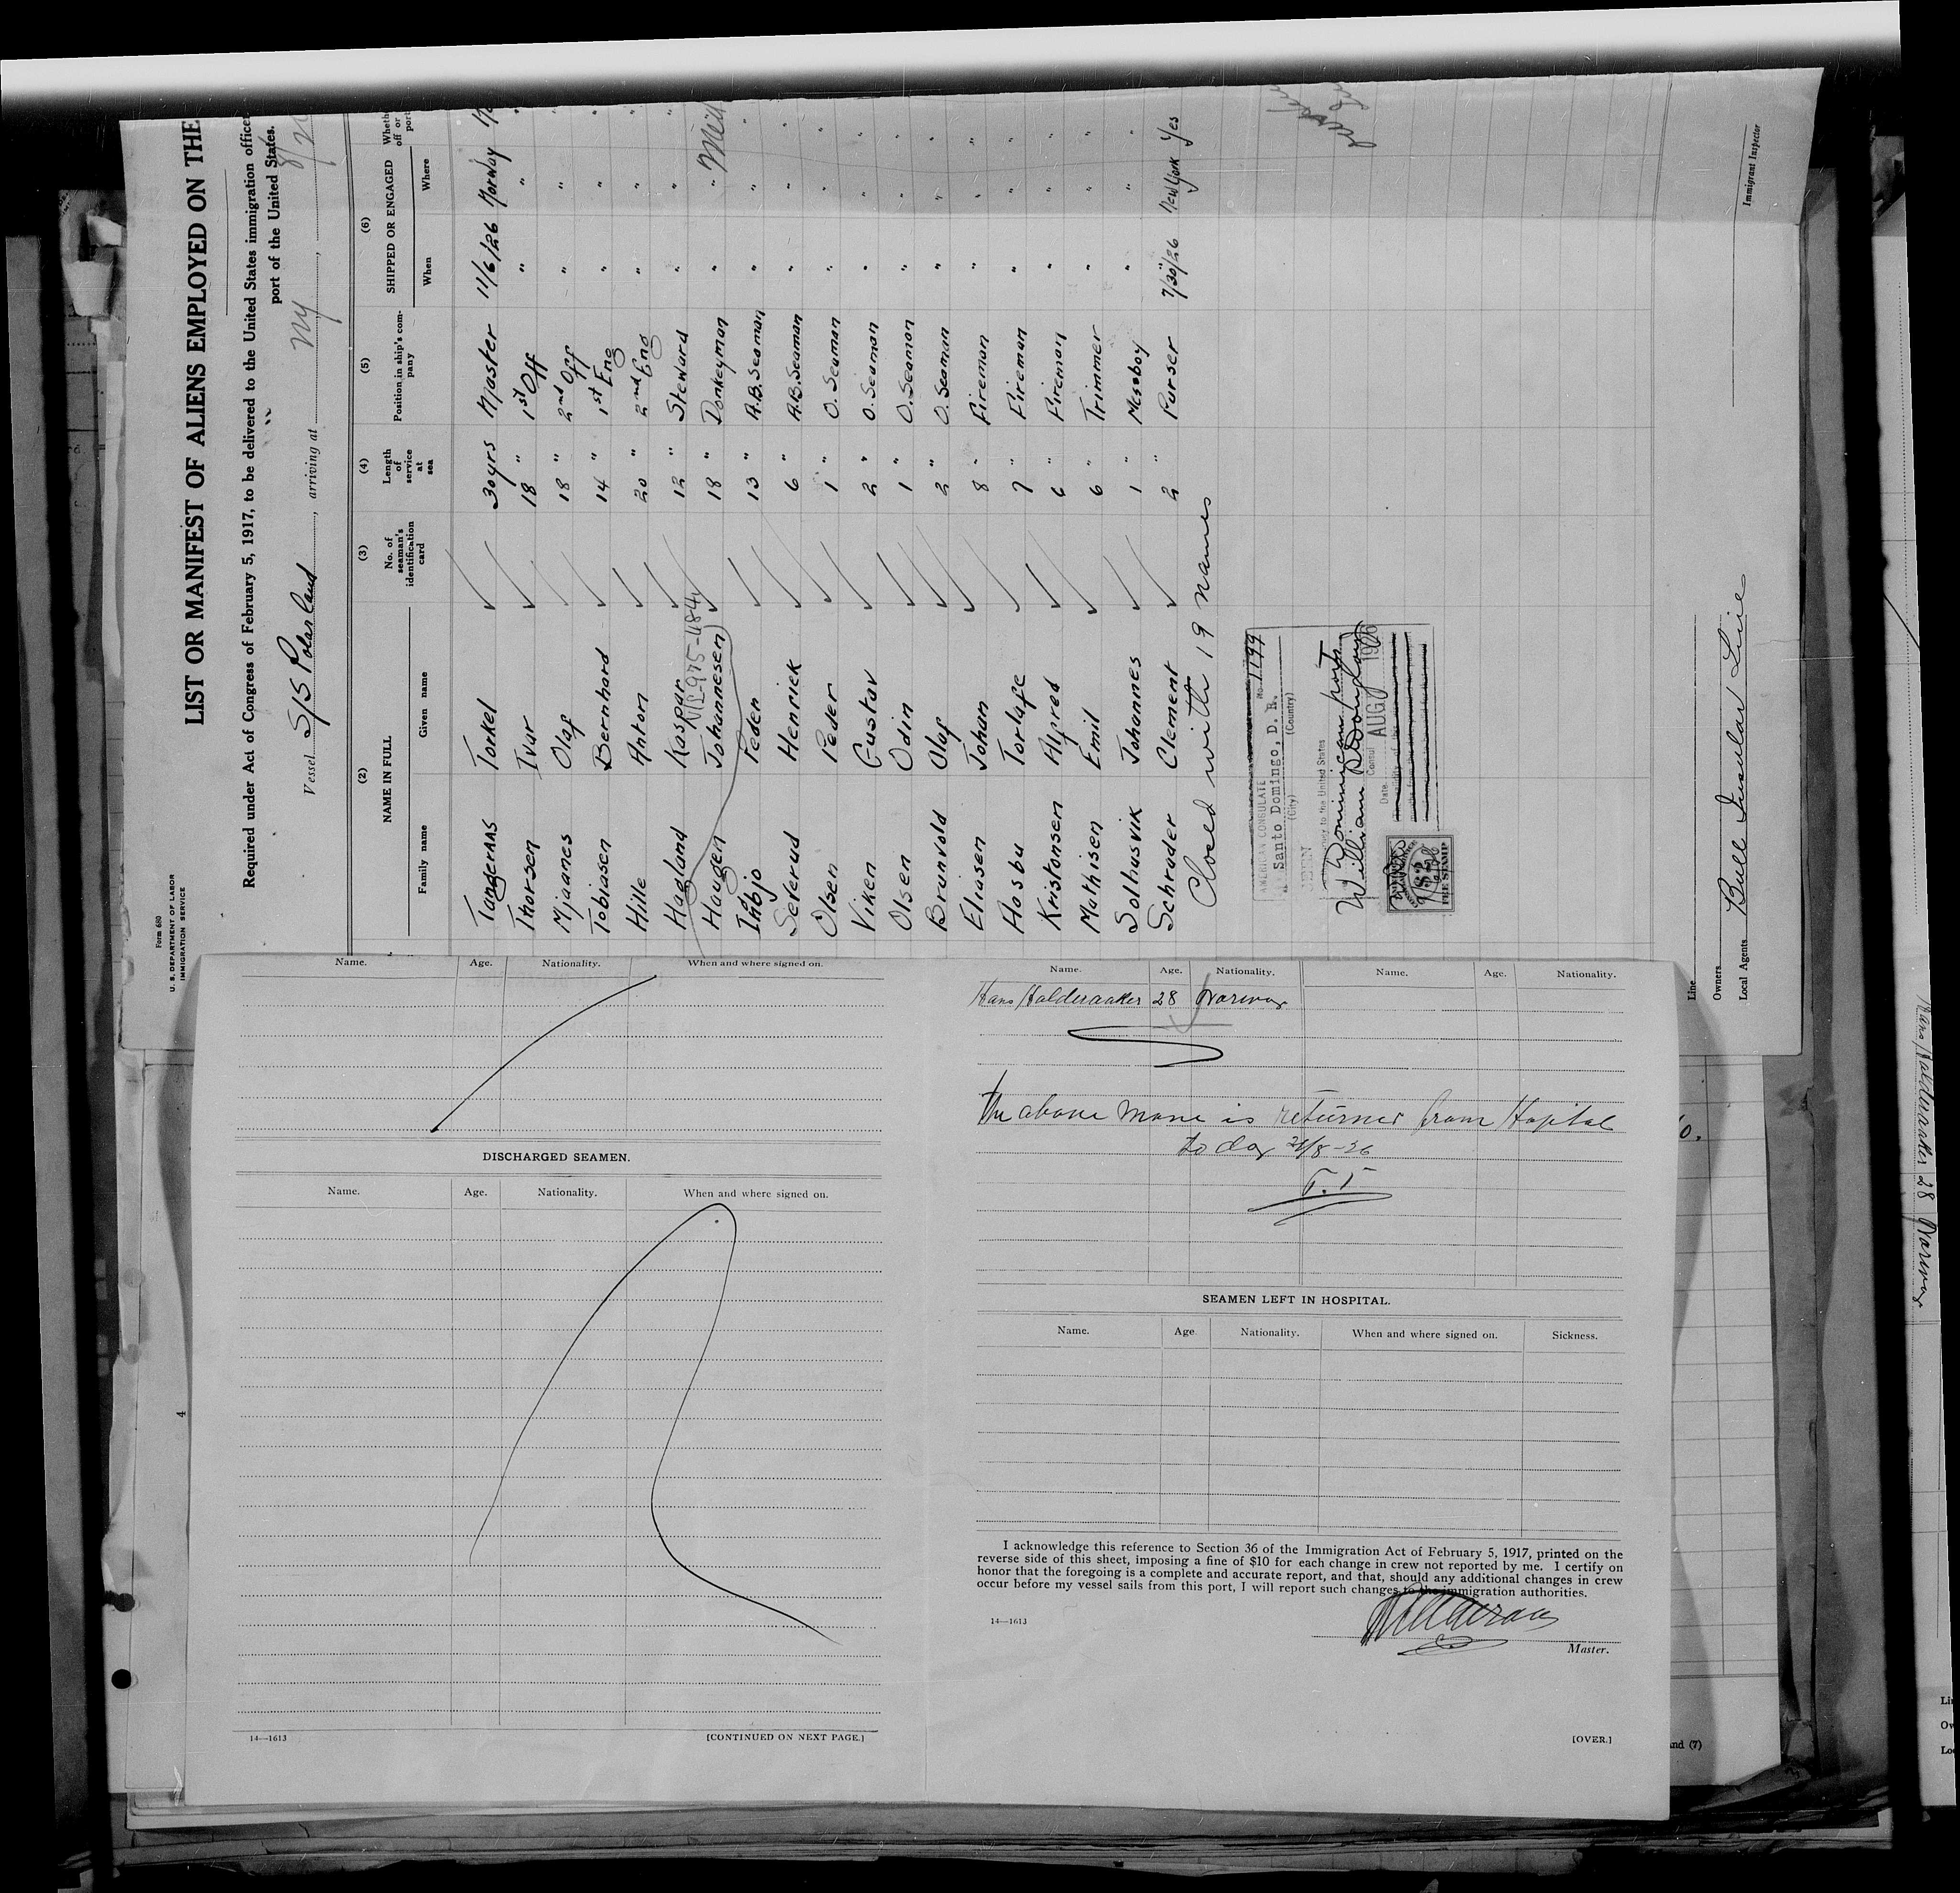 Form 680
U. S. DEPARTMENT OF LABOR
IMMIGRATION SERVICE
LIST OR MANIFEST OF ALIENS EMPLOYED ON THE
Required under Act of Congress of February 5, 1917, to be delivered to the United States immigration officer
port of the United States.
Vessel S/S Polarland, arriving at NY
(2) (3) (4) (5) (6)
NAME IN FULL
Family name Given name
No. of seaman's identification card
Length of service at sea
Position in ship's company
SHIPPED OR ENGAGED
When Where
Tangeraas Torkel 30 yrs Master 11/6/26 Norway
Thorsen Ivar 18 " 1st Off " "
Mjaanes Olaf 18 " 2nd Off " "
Tobiasen Bernhard 14 " 1st Eng " "
Hille Anton 20 " 2nd Eng " "
Hagland Kaspar 12 " Steward " "
Haugen Johannesen 18 " Donkeyman " "
Inbjo Peden 13 " A.B. Seaman " "
Seterud Henrick 6 " A.B. Seaman " "
Olsen Peder 1 " O. Seaman " "
Viken Gustav 2 " O. Seaman " "
Olsen Odin 1 " O. Seaman " "
Brunvold Olaf 2 " O. Seaman " "
Eliasen Johan 8 " Fireman " "
Aosbu Torlafe 7 " Fireman " "
Kristonsen Alfred 6 " Fireman " "
Mathisen Emil 6 " Trimmer " "
Solhusvik Johannes 1 " Messboy " "
Schrader Clement 2 " Purser 7/30/26 New York Yes
Closed with 19 names
AMERICAN CONSULATE No. 1199
Santo Domingo, D. R.
(City) (Country)
SEEN
to the United States
Dominican port
William B Douglass
Consul
Date AUG
$2
FEE STAMP
Immigrant Inspector
Line
Owners
Local Agents Bull Insular Line
Name. Age. Nationality. When and where signed on.
DISCHARGED SEAMEN.
Name. Age. Nationality. When and where signed on.
14—1613 [CONTINUED ON NEXT PAGE.]
Name. Age. Nationality. Name. Age. Nationality.
Hans Halderaaker 28 Norway
The above mane is returned from Hospital
to day 21/8-26
T.T
SEAMEN LEFT IN HOSPITAL.
Name. Age Nationality. When and where signed on. Sickness.
I acknowledge this reference to Section 36 of the Immigration Act of February 5, 1917, printed on the
reverse side of this sheet, imposing a fine of $10 for each change in crew not reported by me. I certify on
honor that the foregoing is a complete and accurate report, and that, should any additional changes in crew
occur before my vessel sails from this port, I will report such changes to the immigration authorities.
14—1613
Master.
[OVER.]
4
and (7)
Hans Halderaaker 28 Norway